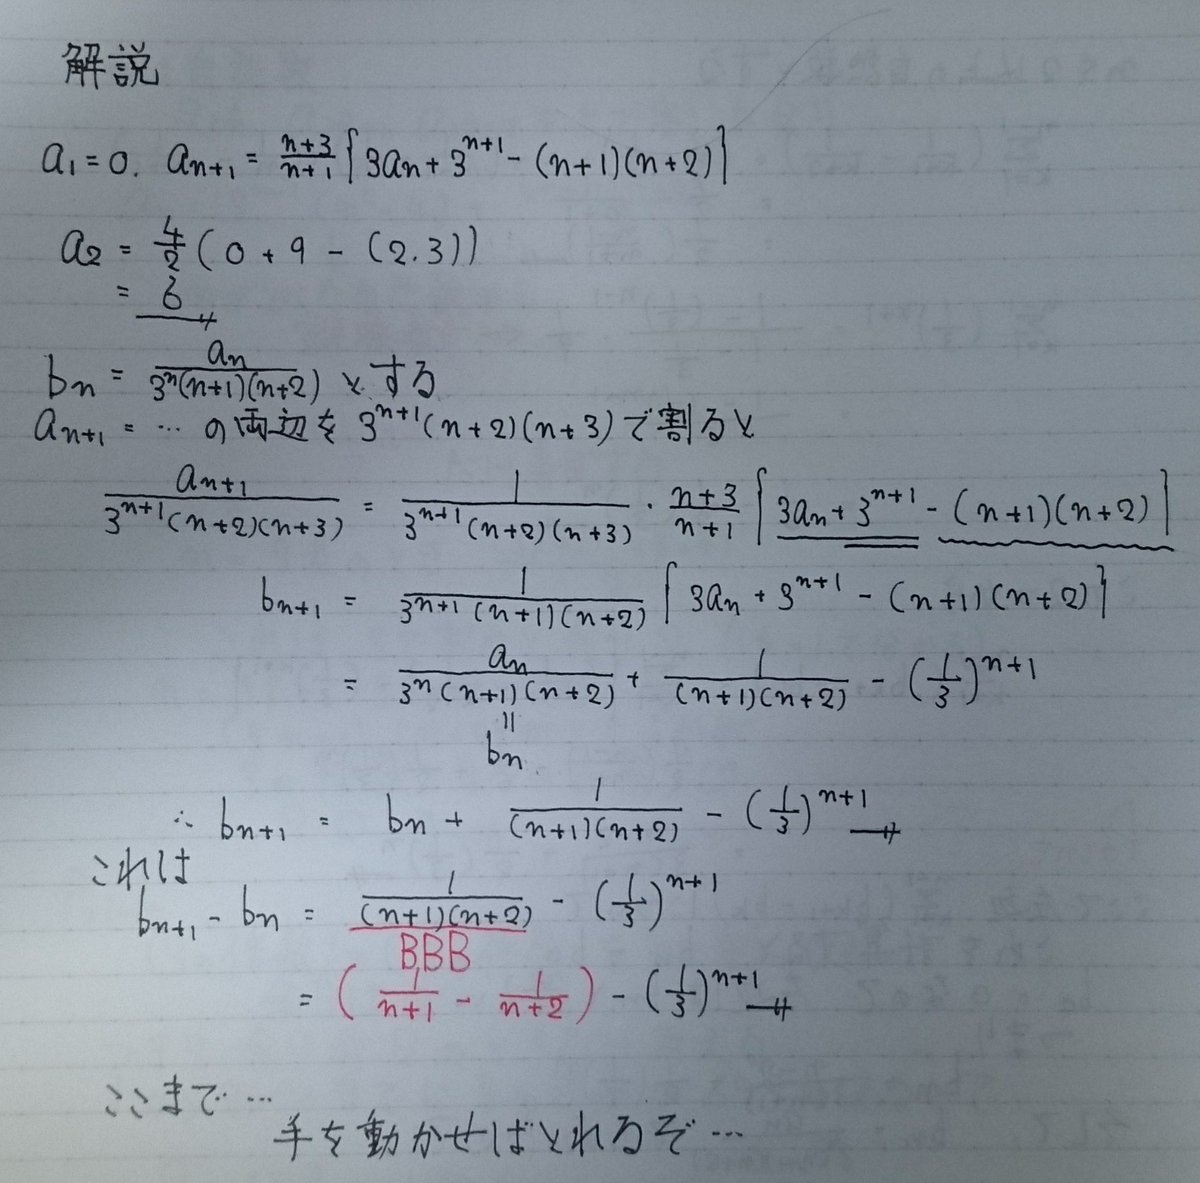 解説
a₁ = 0. aₙ₊₁ = (n+3)/(n+1) {3aₙ + 3ⁿ⁺¹ - (n+1)(n+2)}
a₂ = 4/2 (0 + 9 - (2.3))
= 6
bₙ = aₙ/(3ⁿ(n+1)(n+2)) とする
aₙ₊₁ = … の両辺を 3ⁿ⁺¹(n+2)(n+3) で割ると
aₙ₊₁/(3ⁿ⁺¹(n+2)(n+3)) = 1/(3ⁿ⁺¹(n+2)(n+3)) · (n+3)/(n+1) {3aₙ + 3ⁿ⁺¹ - (n+1)(n+2)}
bₙ₊₁ = 1/(3ⁿ⁺¹(n+1)(n+2)) {3aₙ + 3ⁿ⁺¹ - (n+1)(n+2)}
= aₙ/(3ⁿ(n+1)(n+2)) + 1/((n+1)(n+2)) - (1/3)ⁿ⁺¹
=
bₙ
∴ bₙ₊₁ = bₙ + 1/((n+1)(n+2)) - (1/3)ⁿ⁺¹
これは
bₙ₊₁ - bₙ = 1/((n+1)(n+2)) - (1/3)ⁿ⁺¹
BBB
= (1/(n+1) - 1/(n+2)) - (1/3)ⁿ⁺¹
ここまで…
手を動かせばとれるぞ…